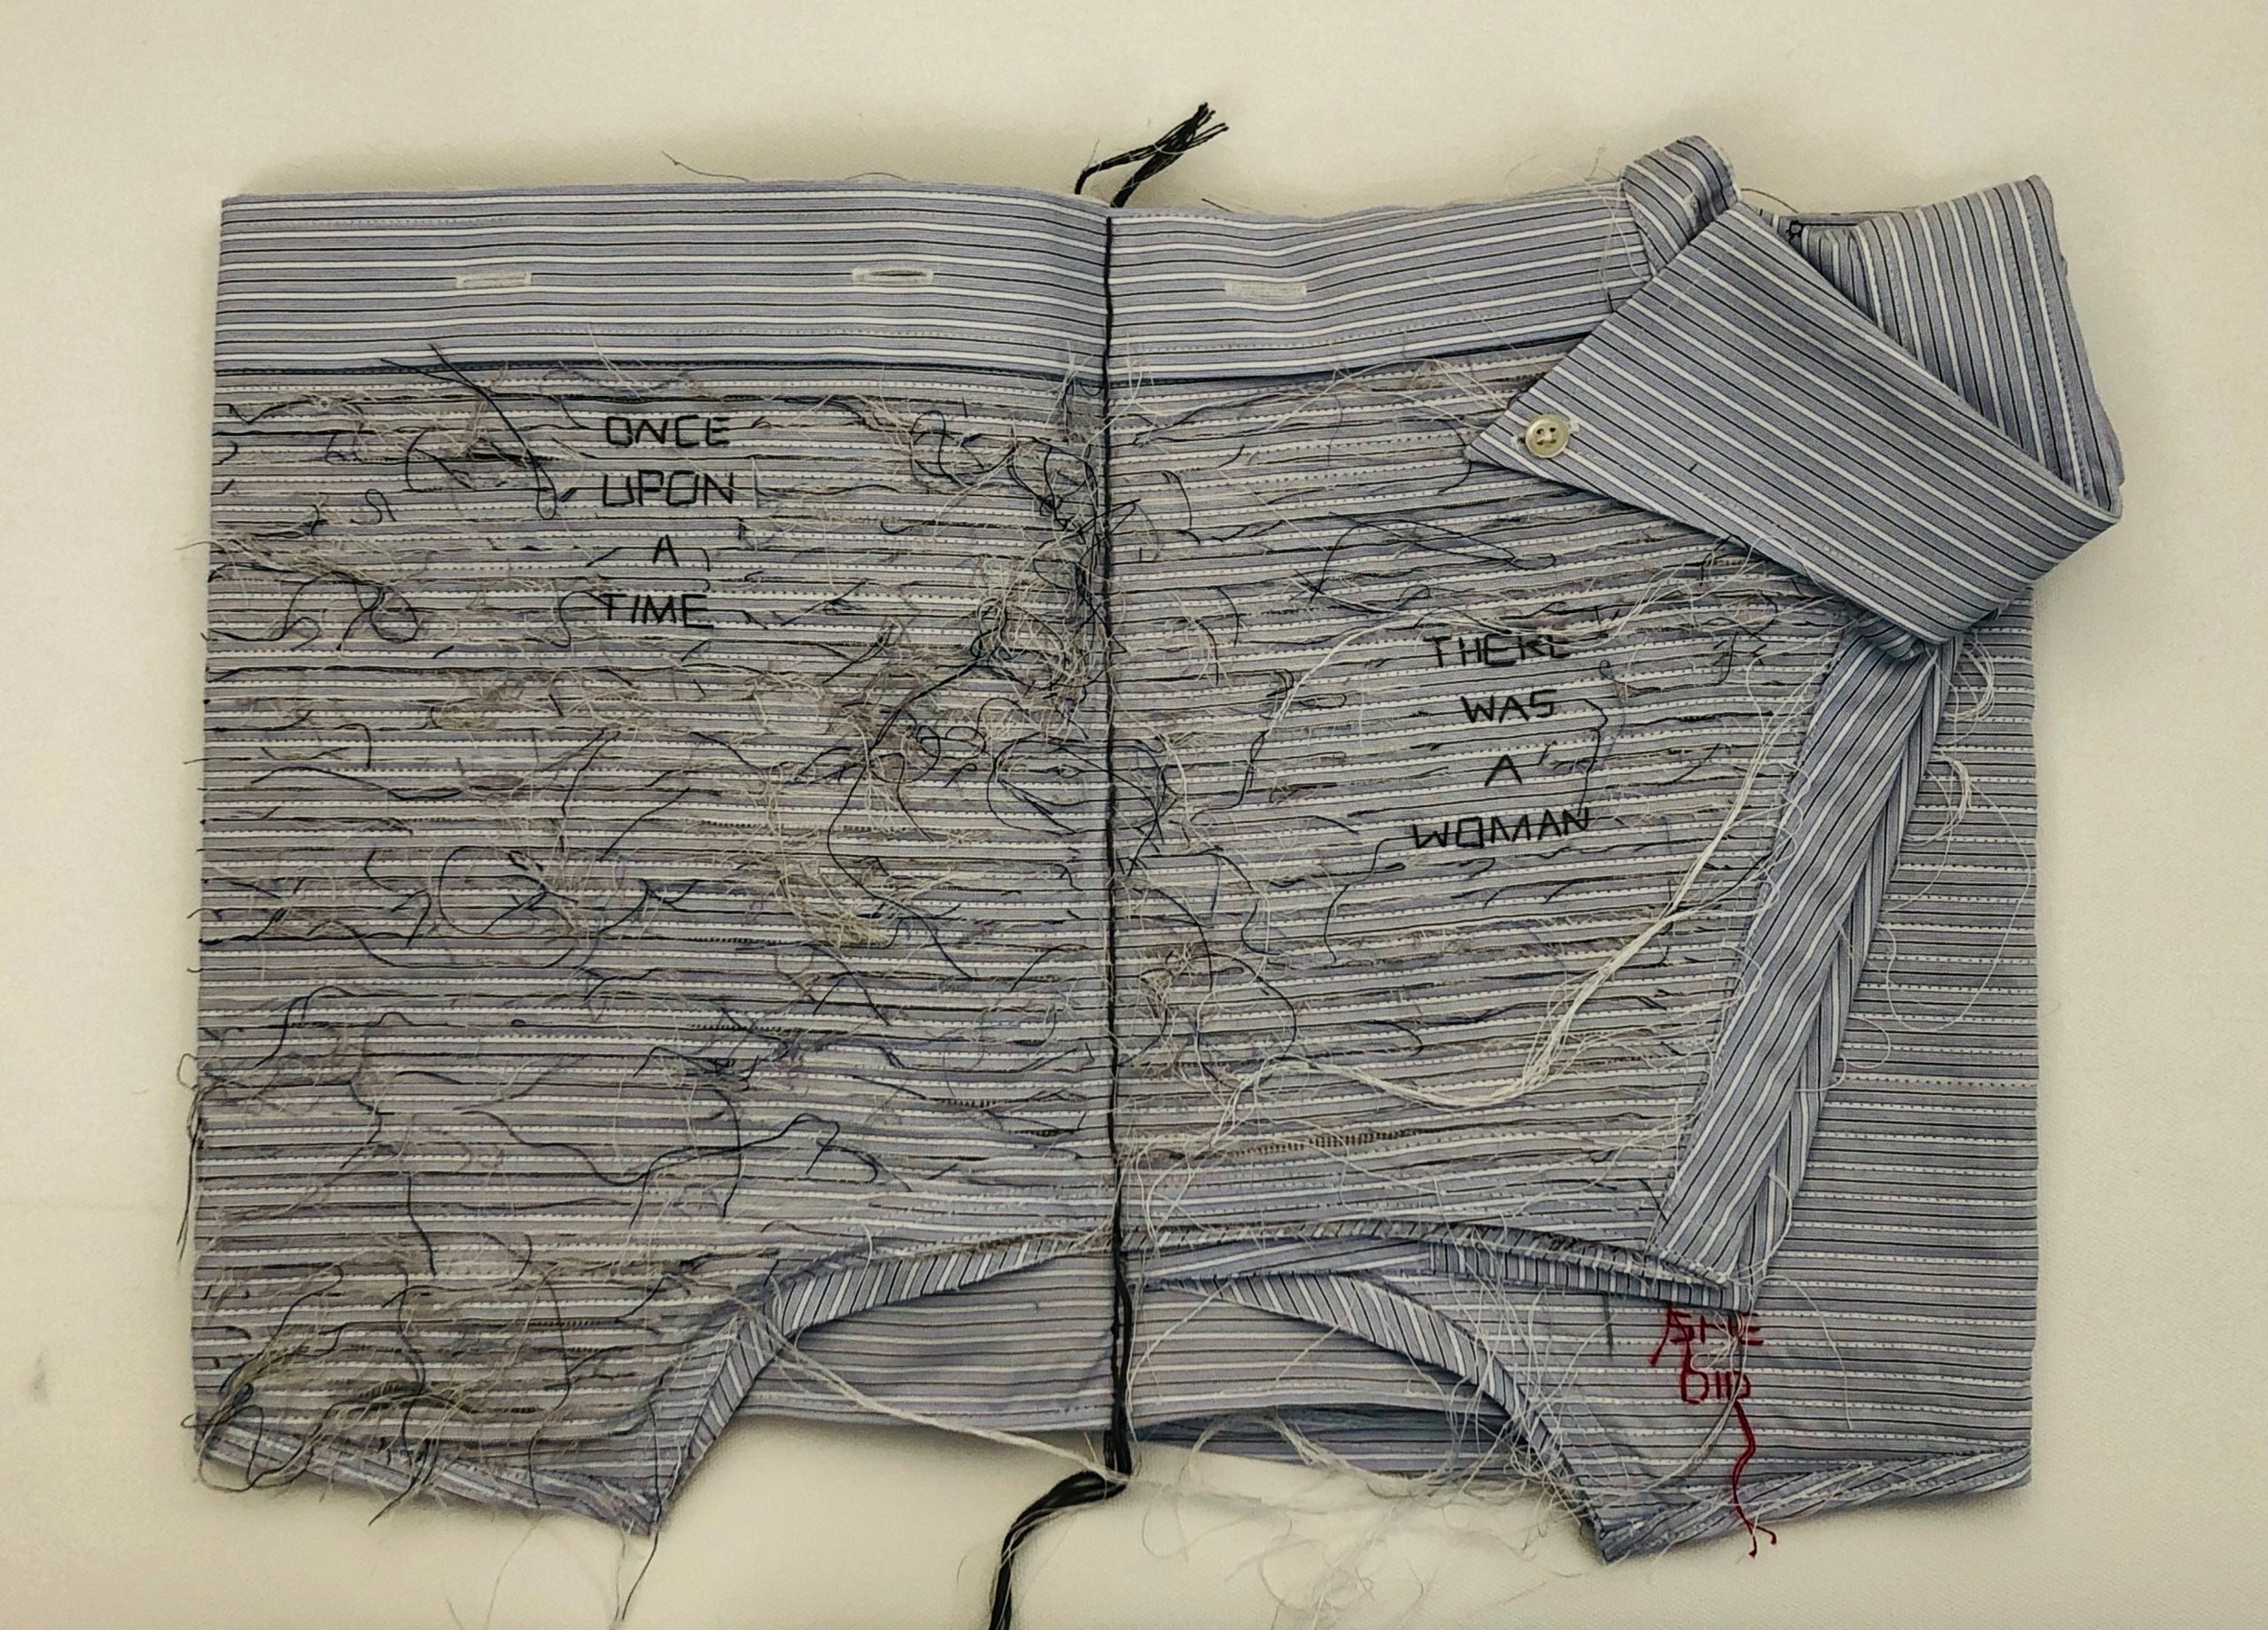 ONCE
UPON
A
TIME
THERE
WAS
A
WOMAN
SHE
DID